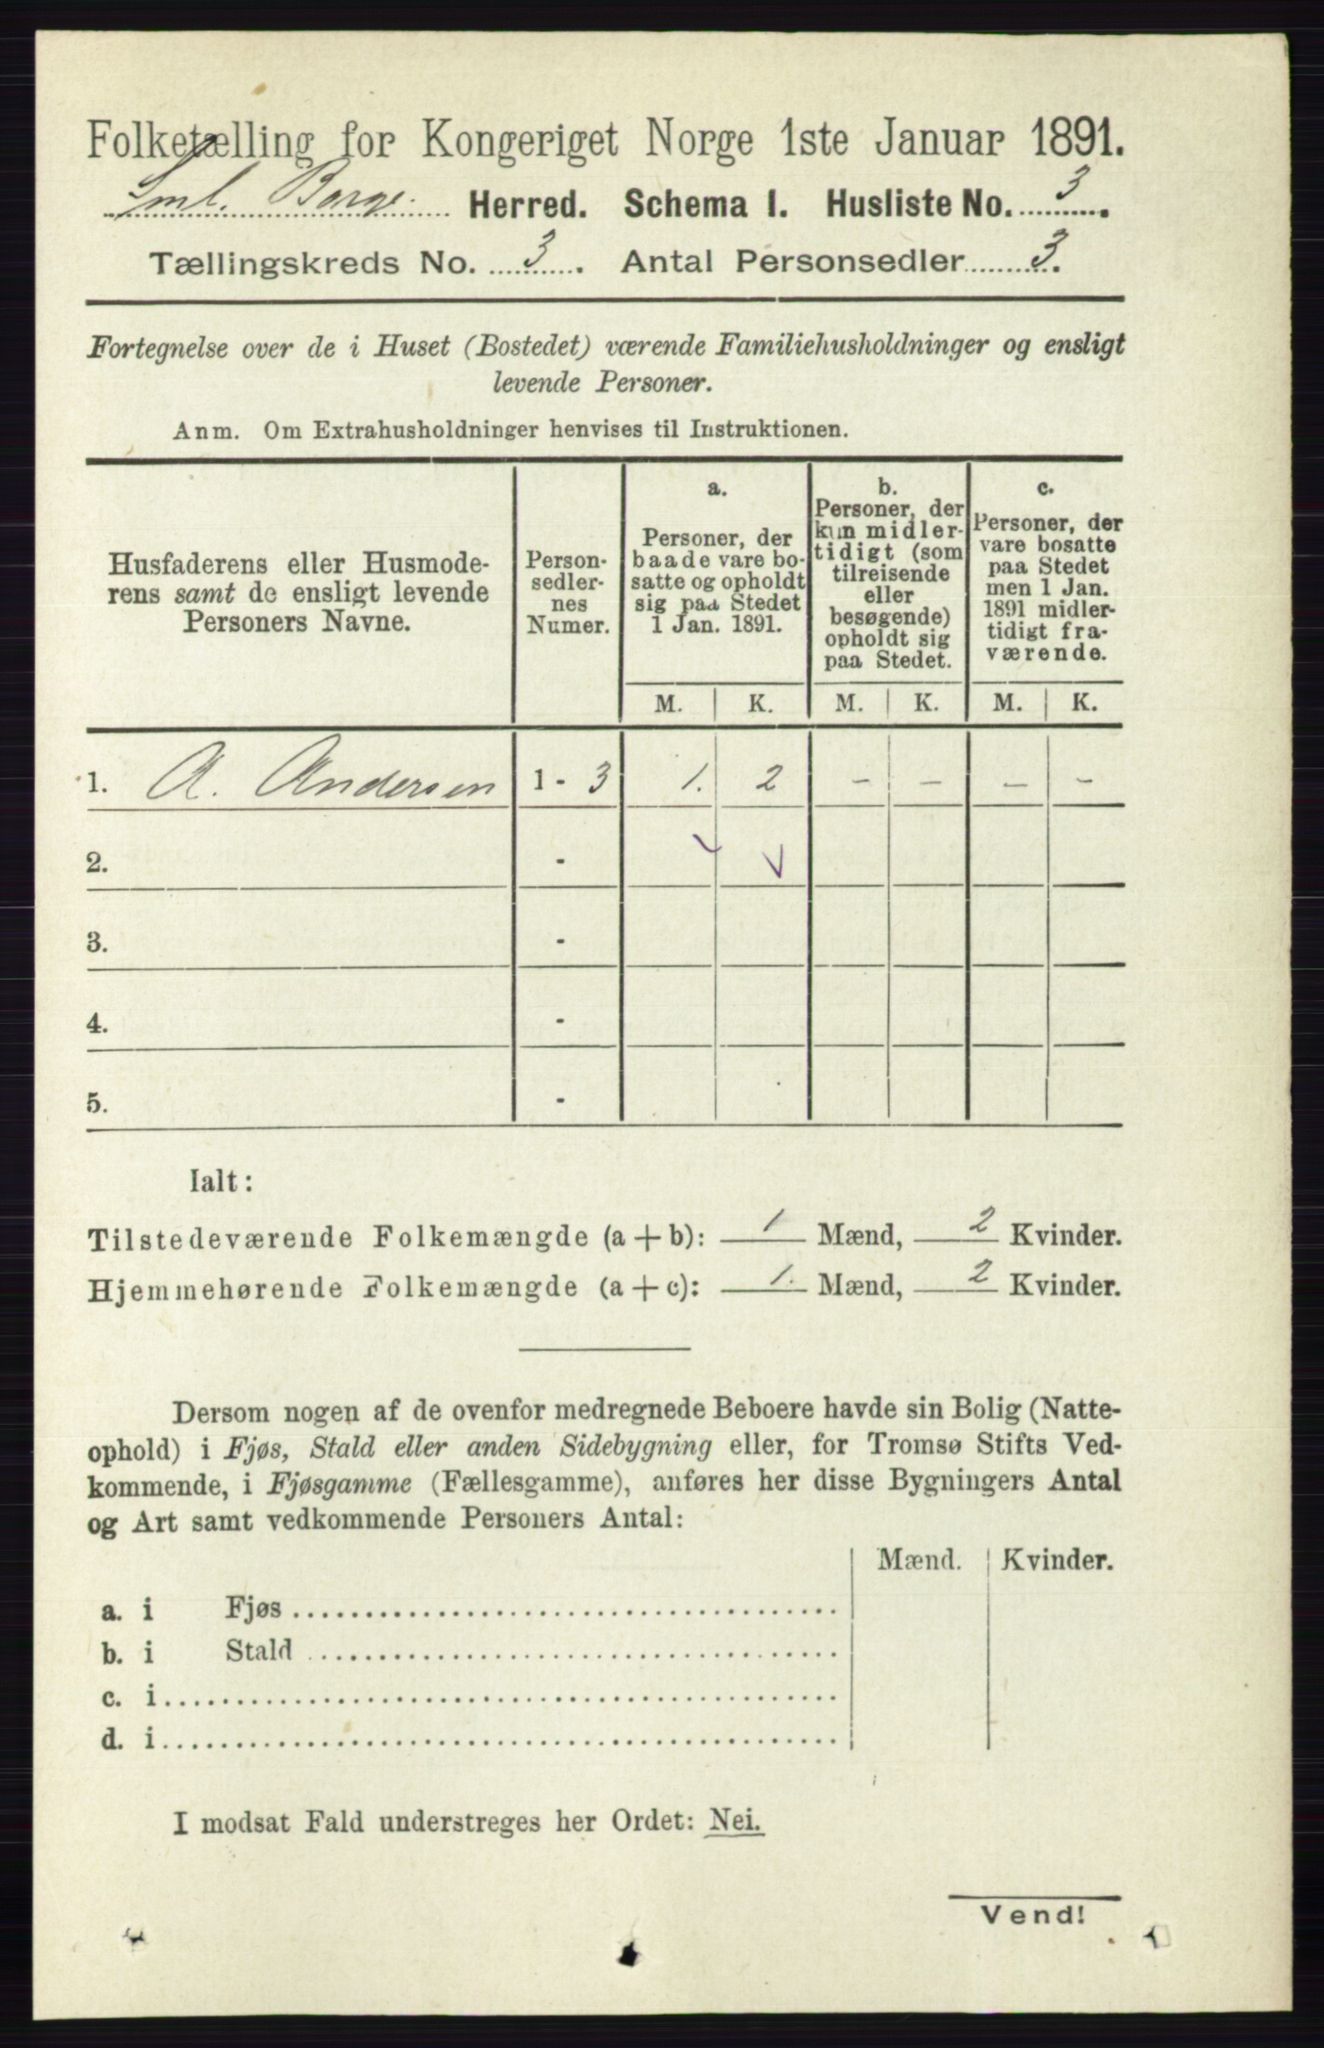 Folketælling for Kongeriget Norge 1ste Januar 1891.
Sml. Borge. Herred. Schema I. Husliste No. 3.
Tællingskreds No. 3. Antal Personsedler 3.
Fortegnelse over de i Huset (Bostedet) værende Familiehusholdninger og ensligt
levende Personer.
Anm. Om Extrahusholdninger henvises til Instruktionen.
Husfaderens eller Husmode-
rens samt de ensligt levende
Personers Navne.
Person-
sedler-
nes
Numer.
a.
Personer, der
baade vare bo-
satte og opholdt
sig paa Stedet
1 Jan. 1891.
b.
Personer, der
kun midler-
tidigt (som
tilreisende
eller
besøgende)
opholdt sig
paa Stedet.
c.
Personer, der
vare bosatte
paa Stedet
men 1 Jan.
1891 midler-
tidigt fra-
værende.
M. K. M. K. M. K.
1. A. Andersen 1 - 3 1. 2 - - - -
2. -
3. -
4. -
5. -
Ialt:
Tilstedeværende Folkemængde (a + b): 1 Mænd, 2 Kvinder.
Hjemmehørende Folkemængde (a + c): 1. Mænd, 2 Kvinder.
Dersom nogen af de ovenfor medregnede Beboere havde sin Bolig (Natte-
ophold) i Fjøs, Stald eller anden Sidebygning eller, for Tromsø Stifts Ved-
kommende, i Fjøsgamme (Fællesgamme), anføres her disse Bygningers Antal
og Art samt vedkommende Personers Antal:
Mænd. Kvinder.
a. i Fjøs
b. i Stald
c. i
d. i
I modsat Fald understreges her Ordet: Nei.
Vend!